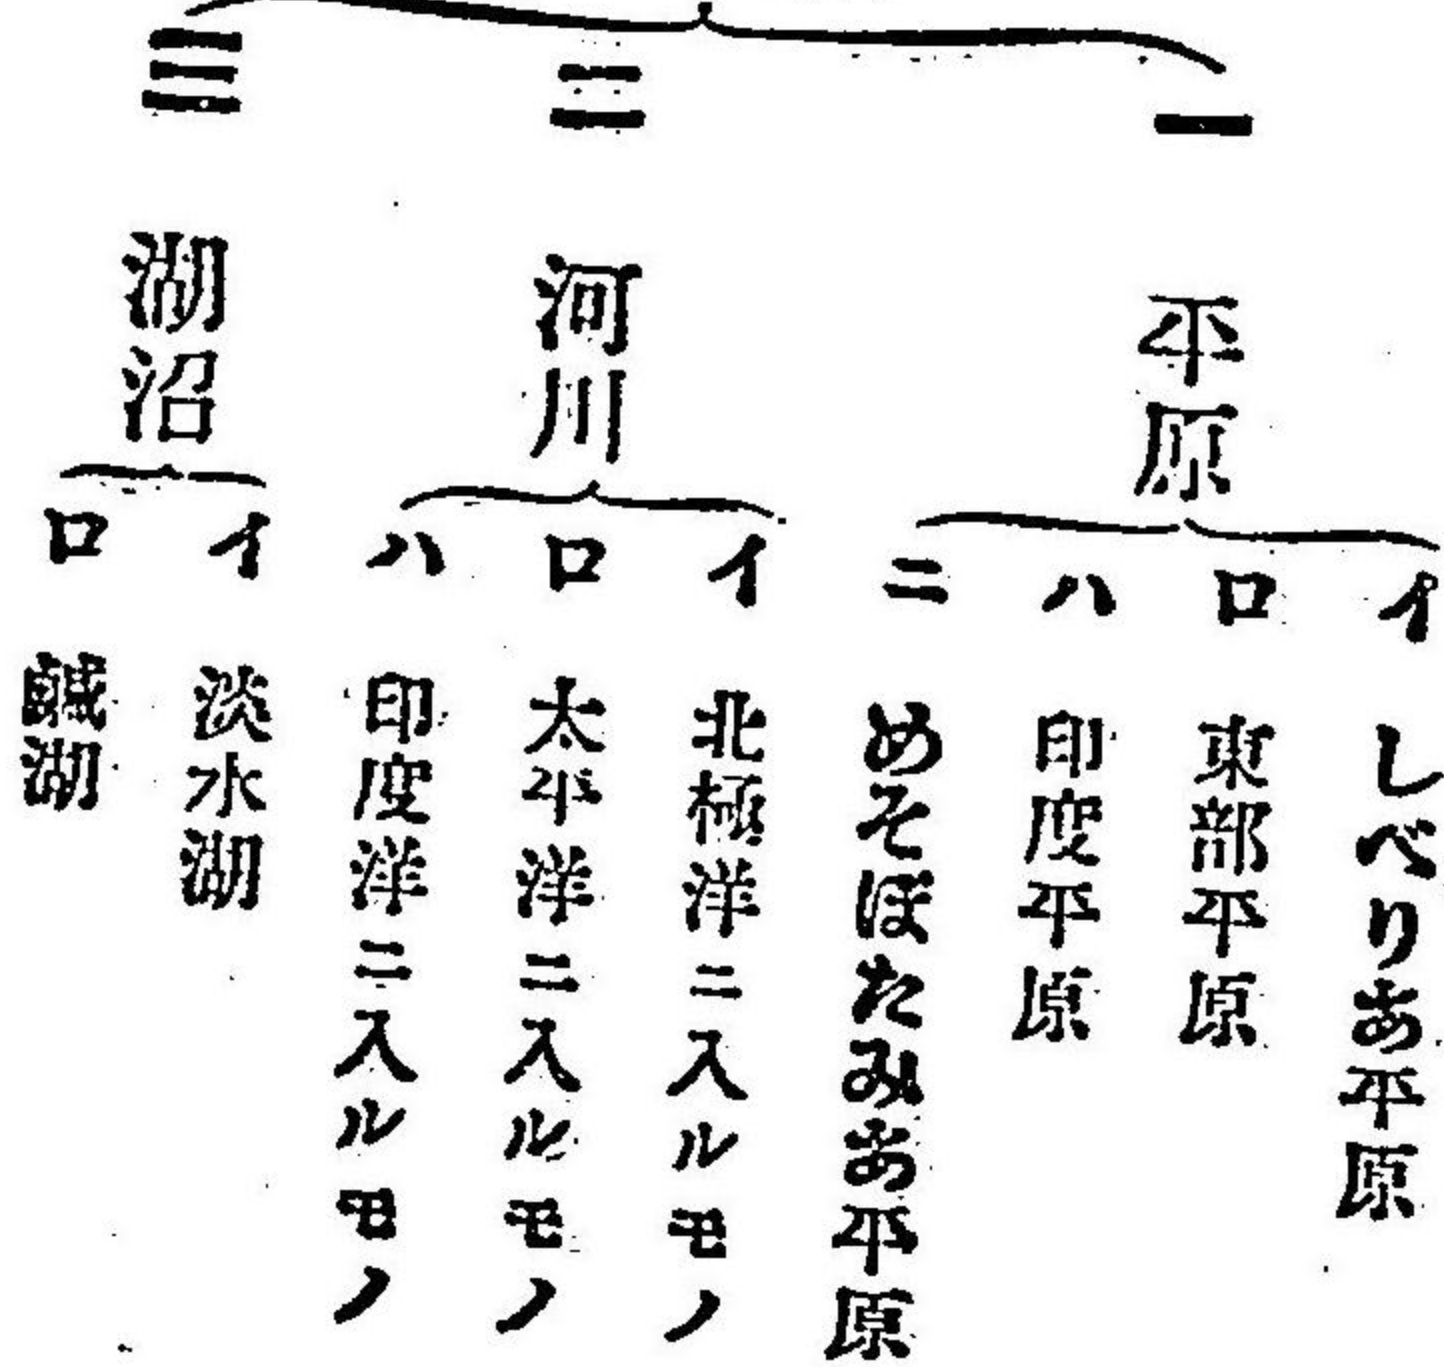 一 平原
イ しべりあ平原
ロ 東部平原
ハ 印度平原
ニ めそぼたみあ平原
二 河川
イ 北極洋ニ入ルモノ
ロ 太平洋ニ入ルモノ
ハ 印度洋ニ入ルモノ
三 湖沼
イ 淡水湖
ロ 鹹湖